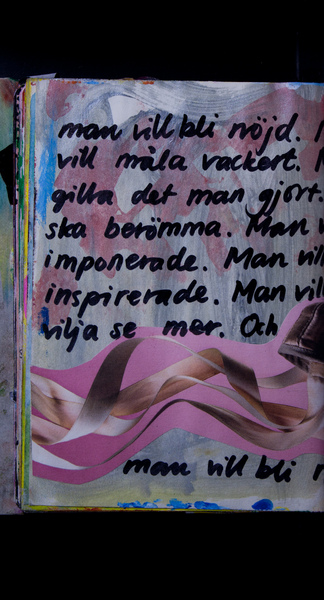 man vill bli nöjd.
vill måla vackert.
gilla det man gjort.
ska berömma. Man
imponerade. Man vill
inspirerade. Man vill
vilja se mer. Och
man vill bli